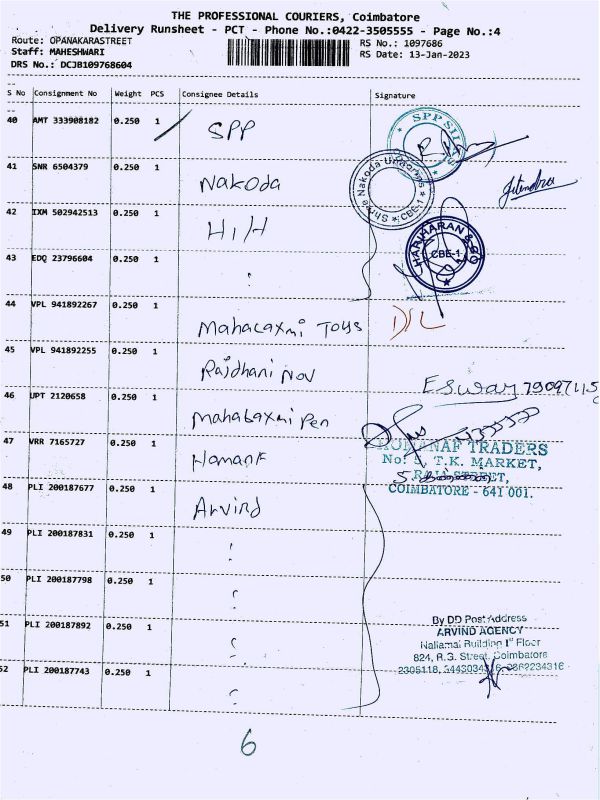 THE PROFESSIONAL COURIERS, Coimbatore
Delivery Runsheet - PCT - Phone No.:0422-3505555 - Page No.:4
Route: OPANAKARASTREET
RS No.: 1097686
Staff: MAHESHWARI
RS Date: 13-Jan-2023
DRS No.: DCJB109768604
S No Consignment No Weight PCS Consignee Details Signature
40 AMT 333908182 0.250 1 SPP
SPP SIL
41 SNR 6504379 0.250 1 Nakoda
Shree Nakoda CBE-1
Jitendra
42 IXM 502942513 0.250 1 H/H
HARIHARAN & CO
CBE-1
43 EDQ 23796604 0.250 1 "
44 VPL 941892267 0.250 1 Mahalaxmi Toys
45 VPL 941892255 0.250 1 Rajdhani Nov
Eswar
46 UPT 2120658 0.250 1 Mahalaxmi Pen
47 VRR 7165727 0.250 1 Hamank
TRADERS
No: 5, T.K. MARKET,
RAJA STREET,
COIMBATORE - 641 001.
48 PLI 200187677 0.250 1 Arvind
49 PLI 200187831 0.250 1 "
50 PLI 200187798 0.250 1 "
51 PLI 200187892 0.250 1 "
52 PLI 200187743 0.250 1 "
By DD Post Address
ARVIND AGENCY
Nallamai Building Ist Floor
824, R.G. Street, Coimbatore
2305118,
6